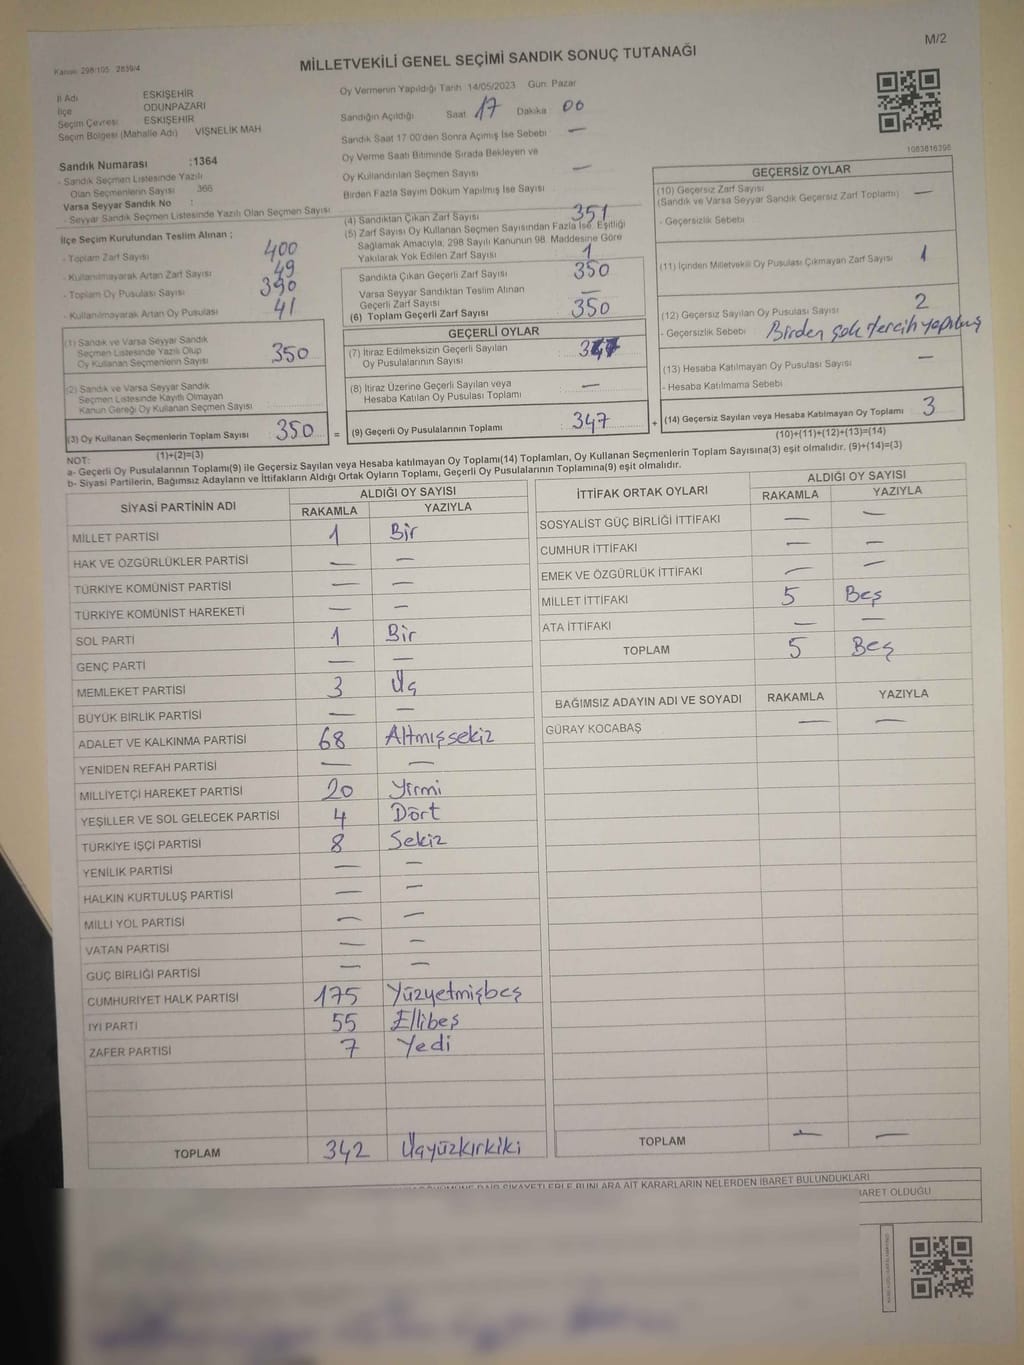 M/2
MİLLETVEKİLİ GENEL SEÇİMİ SANDIK SONUÇ TUTANAĞI
Kanun: 298/105 2839/4
İl Adı ESKİŞEHİR
İlçe ODUNPAZARI
Seçim Çevresi ESKİŞEHİR
Seçim Bölgesi (Mahalle Adı) VİŞNELİK MAH
Sandık Numarası : 1364
- Sandık Seçmen Listesinde Yazılı
Olan Seçmenlerin Sayısı 366
Varsa Seyyar Sandık No :
- Seyyar Sandık Seçmen Listesinde Yazılı Olan Seçmen Sayısı
İlçe Seçim Kurulundan Teslim Alınan ;
- Toplam Zarf Sayısı 400
- Kullanılmayarak Artan Zarf Sayısı 49
- Toplam Oy Pusulası Sayısı 390
- Kullanılmayarak Artan Oy Pusulası 41
(1) Sandık ve Varsa Seyyar Sandık
Seçmen Listesinde Yazılı Olup
Oy Kullanan Seçmenlerin Sayısı 350
(2) Sandık ve Varsa Seyyar Sandık
Seçmen Listesinde Kayıtlı Olmayan
Kanun Gereği Oy Kullanan Seçmen Sayısı
(3) Oy Kullanan Seçmenlerin Toplam Sayısı 350 =
(1)+(2)=(3)
Oy Vermenin Yapıldığı Tarih 14/05/2023 Gün: Pazar
Sandığın Açıldığı Saat 17 Dakika 00
Sandık Saat 17:00'den Sonra Açılmış İse Sebebi —
Oy Verme Saati Bitiminde Sırada Bekleyen ve
Oy Kullandırılan Seçmen Sayısı —
Birden Fazla Sayım Döküm Yapılmış İse Sayısı
(4) Sandıktan Çıkan Zarf Sayısı 351
(5) Zarf Sayısı Oy Kullanan Seçmen Sayısından Fazla İse, Eşitliği
Sağlamak Amacıyla, 298 Sayılı Kanunun 98. Maddesine Göre
Yakılarak Yok Edilen Zarf Sayısı 1
Sandıkta Çıkan Geçerli Zarf Sayısı 350
Varsa Seyyar Sandıktan Teslim Alınan
Geçerli Zarf Sayısı —
(6) Toplam Geçerli Zarf Sayısı 350
GEÇERLİ OYLAR
(7) İtiraz Edilmeksizin Geçerli Sayılan
Oy Pusulalarının Sayısı 347
(8) İtiraz Üzerine Geçerli Sayılan veya
Hesaba Katılan Oy Pusulası Toplamı —
(9) Geçerli Oy Pusulalarının Toplamı 347 +
1083816396
GEÇERSİZ OYLAR
(10) Geçersiz Zarf Sayısı
(Sandık ve Varsa Seyyar Sandık Geçersiz Zarf Toplamı) —
- Geçersizlik Sebebi
(11) İçinden Milletvekili Oy Pusulası Çıkmayan Zarf Sayısı 1
(12) Geçersiz Sayılan Oy Pusulası Sayısı 2
- Geçersizlik Sebebi Birden çok tercih yapılmış
(13) Hesaba Katılmayan Oy Pusulası Sayısı —
- Hesaba Katılmama Sebebi
(14) Geçersiz Sayılan veya Hesaba Katılmayan Oy Toplamı 3
(10)+(11)+(12)+(13)=(14)
NOT:
a- Geçerli Oy Pusulalarının Toplamı(9) ile Geçersiz Sayılan veya Hesaba katılmayan Oy Toplamı(14) Toplamları, Oy Kullanan Seçmenlerin Toplam Sayısına(3) eşit olmalıdır. (9)+(14)=(3)
b- Siyasi Partilerin, Bağımsız Adayların ve İttifakların Aldığı Ortak Oyların Toplamı, Geçerli Oy Pusulalarının Toplamına(9) eşit olmalıdır.
SİYASİ PARTİNİN ADI ALDIĞI OY SAYISI
RAKAMLA YAZIYLA
MİLLET PARTİSİ 1 Bir
HAK VE ÖZGÜRLÜKLER PARTİSİ — —
TÜRKİYE KOMÜNİST PARTİSİ — —
TÜRKİYE KOMÜNİST HAREKETİ — —
SOL PARTİ 1 Bir
GENÇ PARTİ — —
MEMLEKET PARTİSİ 3 Üç
BÜYÜK BİRLİK PARTİSİ — —
ADALET VE KALKINMA PARTİSİ 68 Altmışsekiz
YENİDEN REFAH PARTİSİ — —
MİLLİYETÇİ HAREKET PARTİSİ 20 Yirmi
YEŞİLLER VE SOL GELECEK PARTİSİ 4 Dört
TÜRKİYE İŞÇİ PARTİSİ 8 Sekiz
YENİLİK PARTİSİ — —
HALKIN KURTULUŞ PARTİSİ — —
MİLLİ YOL PARTİSİ — —
VATAN PARTİSİ — —
GÜÇ BİRLİĞİ PARTİSİ — —
CUMHURİYET HALK PARTİSİ 175 Yüzyetmişbeş
İYİ PARTİ 55 Ellibeş
ZAFER PARTİSİ 7 Yedi
TOPLAM 342 Üçyüzkırkiki
İTTİFAK ORTAK OYLARI ALDIĞI OY SAYISI
RAKAMLA YAZIYLA
SOSYALİST GÜÇ BİRLİĞİ İTTİFAKI — —
CUMHUR İTTİFAKI — —
EMEK VE ÖZGÜRLÜK İTTİFAKI — —
MİLLET İTTİFAKI 5 Beş
ATA İTTİFAKI — —
TOPLAM 5 Beş
BAĞIMSIZ ADAYIN ADI VE SOYADI RAKAMLA YAZIYLA
GÜRAY KOCABAŞ — —
TOPLAM — —
ŞİKAYETLERLE BUNLARA AİT KARARLARIN NELERDEN İBARET BULUNDUKLARI
İBARET OLDUĞU